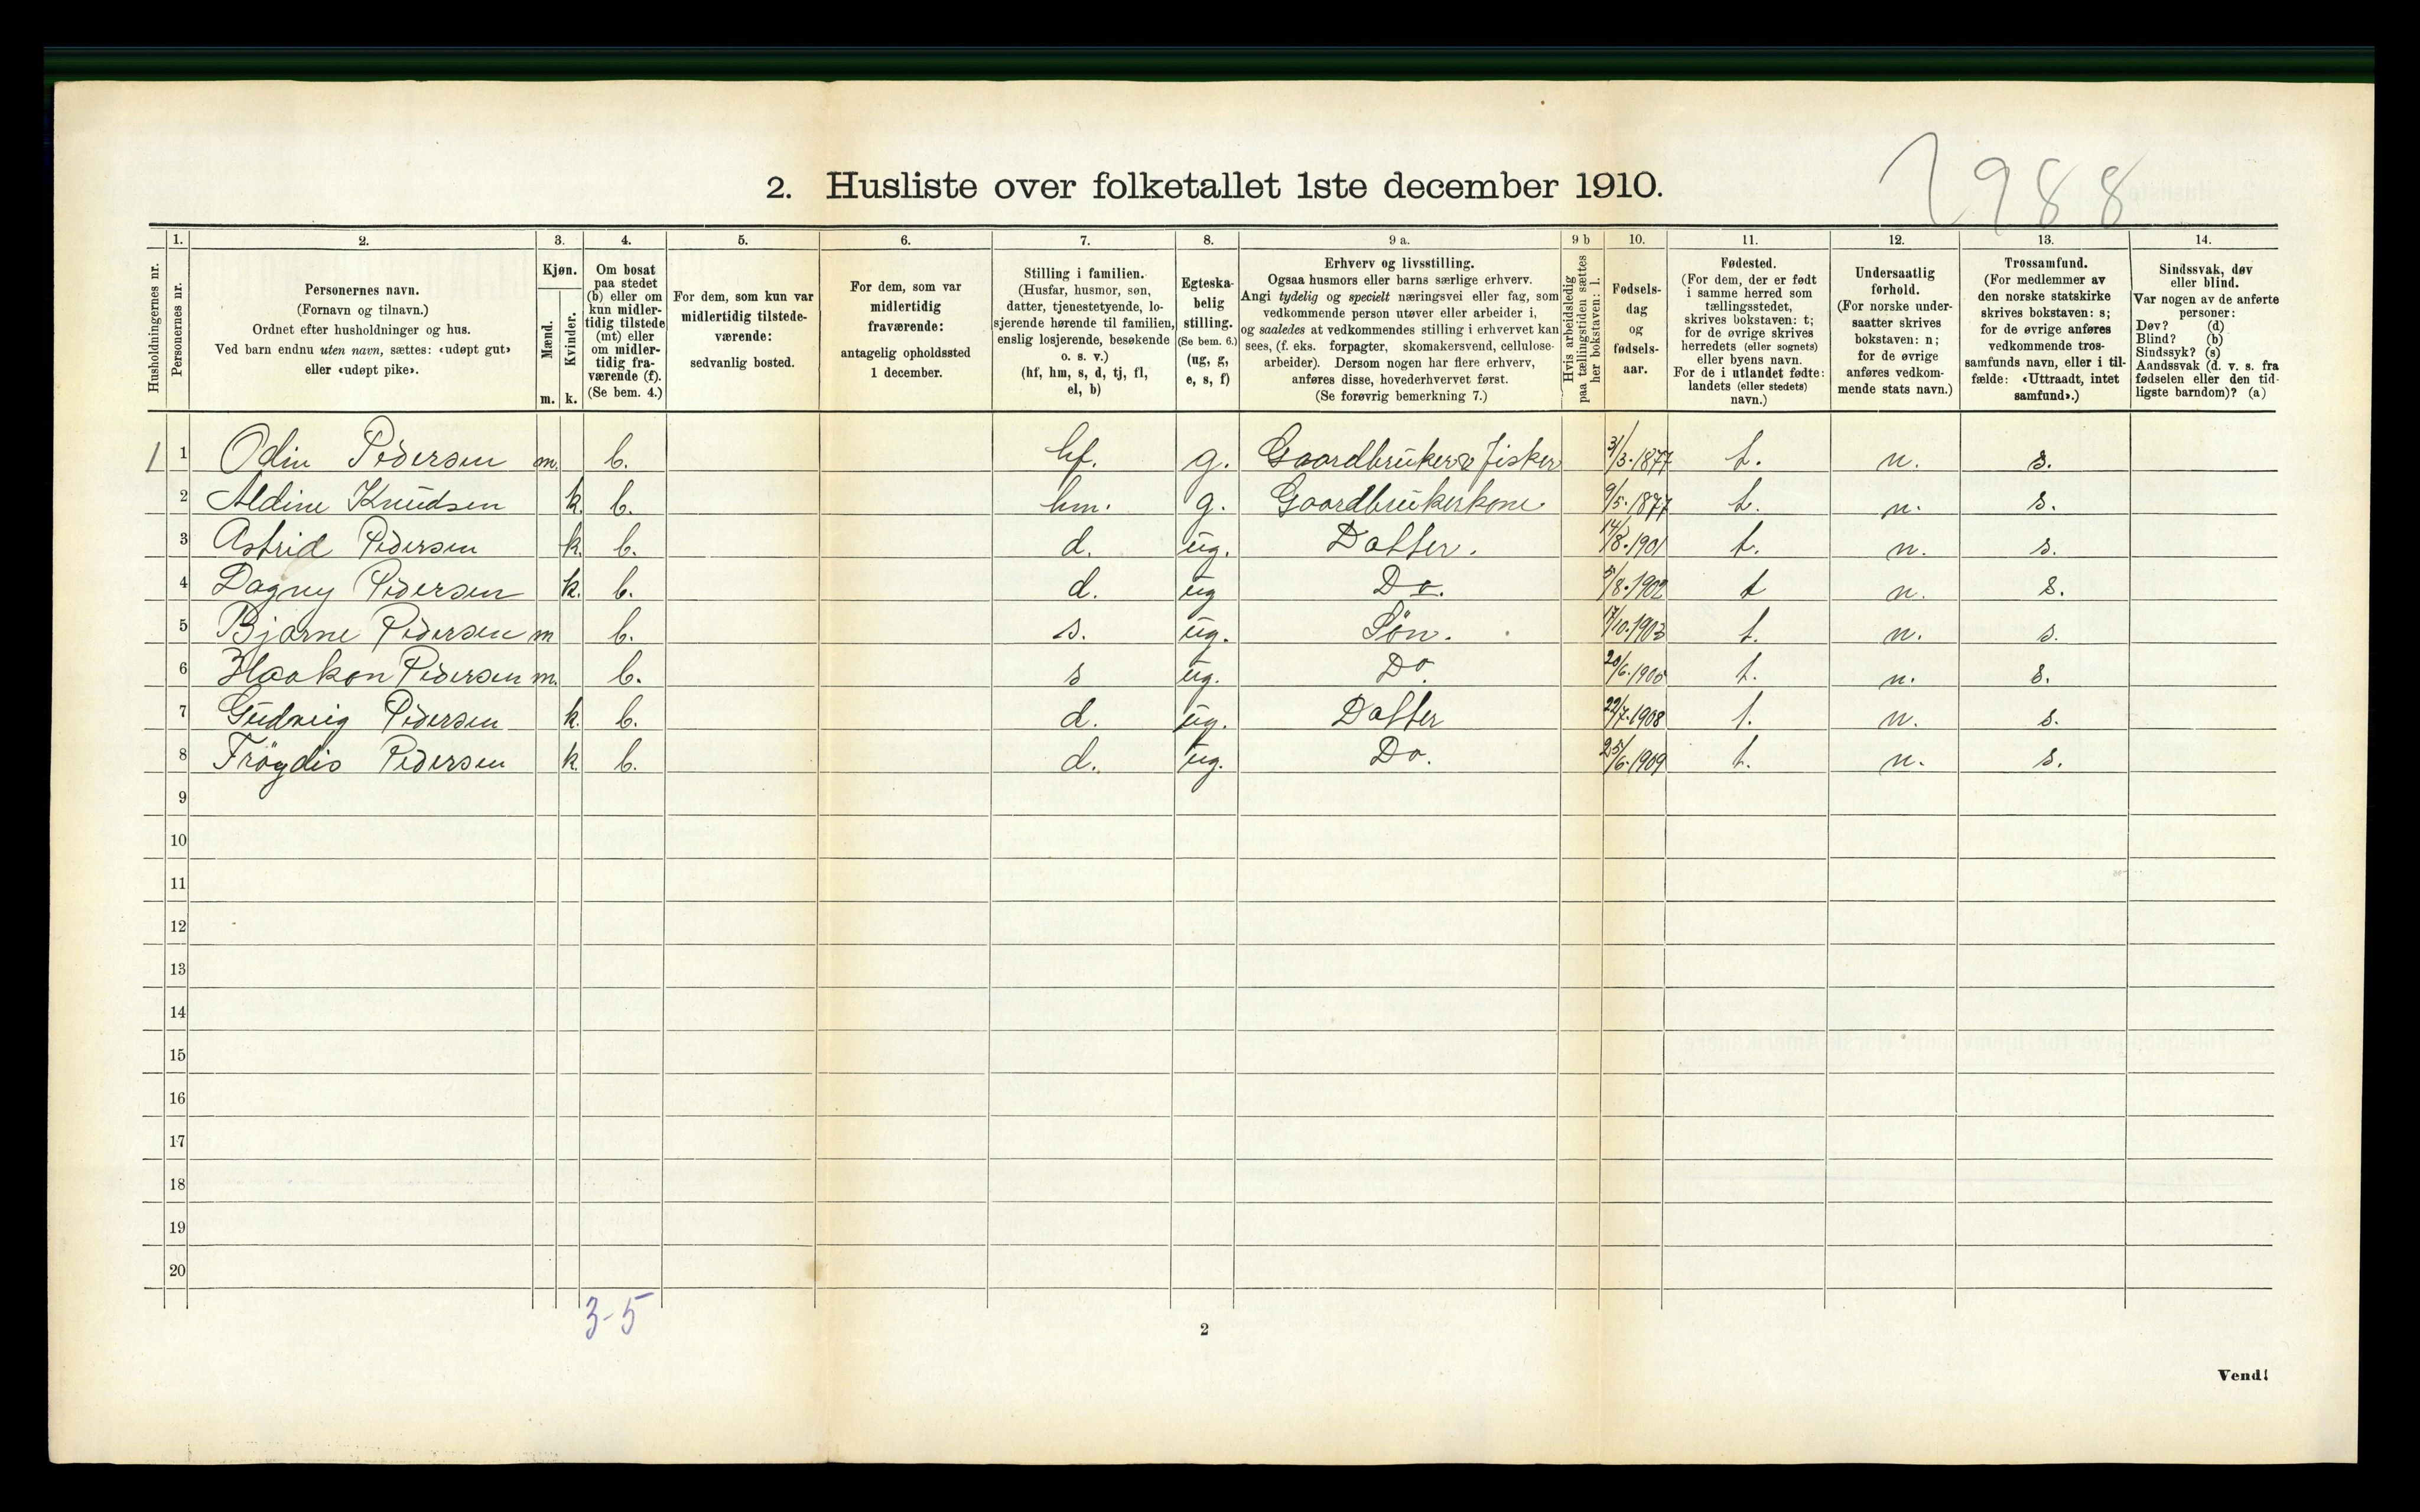 2988
2. Husliste over folketallet 1ste december 1910.
1. 2. 3. 4. 5. 6. 7. 8. 9 a. 9 b 10. 11. 12. 13. 14.
Husholdningernes nr.
Personernes nr.
Personernes navn.
(Fornavn og tilnavn.)
Ordnet efter husholdninger og hus.
Ved barn endnu uten navn, sættes: «udøpt gut»
eller «udøpt pike».
Kjøn.
Mænd.
Kvinder.
m. k.
Om bosat
paa stedet
(b) eller om
kun midler-
tidig tilstede
(mt) eller
om midler-
tidig fra-
værende (f).
(Se bem. 4.)
For dem, som kun var
midlertidig tilstede-
værende:
sedvanlig bosted.
For dem, som var
midlertidig
fraværende:
antagelig opholdssted
1 december.
Stilling i familien.
(Husfar, husmor, søn,
datter, tjenestetyende, lo-
sjerende hørende til familien,
enslig losjerende, besøkende
o. s. v.)
(hf, hm, s, d, tj, fl,
el, b)
Egteska-
belig
stilling.
(Se bem. 6.)
(ug, g,
e, s, f)
Erhverv og livsstilling.
Ogsaa husmors eller barns særlige erhverv.
Angi tydelig og specielt næringsvei eller fag, som
vedkommende person utøver eller arbeider i,
og saaledes at vedkommendes stilling i erhvervet kan
sees, (f. eks. forpagter, skomakersvend, cellulose-
arbeider). Dersom nogen har flere erhverv,
anføres disse, hovederhvervet først.
(Se forøvrig bemerkning 7.)
Hvis arbeidsledig
paa tællingstiden sættes
her bokstaven: l.
Fødsels-
dag
og
fødsels-
aar.
Fødested.
(For dem, der er født
i samme herred som
tællingsstedet,
skrives bokstaven: t;
for de øvrige skrives
herredets (eller sognets)
eller byens navn.
For de i utlandet fødte:
landets (eller stedets)
navn.)
Undersaatlig
forhold.
(For norske under-
saatter skrives
bokstaven: n;
for de øvrige
anføres vedkom-
mende stats navn.)
Trossamfund.
(For medlemmer av
den norske statskirke
skrives bokstaven: s;
for de øvrige anføres
vedkommende tros-
samfunds navn, eller i til-
fælde: «Uttraadt, intet
samfund».)
Sindssvak, døv
eller blind.
Var nogen av de anførte
personer:
Døv? (d)
Blind? (b)
Sindssyk? (s)
Aandssvak (d. v. s. fra
fødselen eller den tid-
ligste barndom)? (a)
1 1 Odin Pedersen m. b. hf. g. Gaardbruker & Fisker 31/3-1877 t. n. s.
2 Aldine Knudsen k. b. hm. g. Gaardbrukerkone 9/5-1877 t. n. s.
3 Astrid Pedersen k. b. d. ug. Datter. 14/8-1901 t. n. s.
4 Dagny Pedersen k. b. d. ug Do. 5/8-1902 t n. s.
5 Bjarne Pedersen m b. s. ug. Søn. 17/10-1903 t. n. s.
6 Haakon Pedersen m. b. s ug. Do. 20/6-1905 t. n. s.
7 Gudveig Pedersen k. b. d. ug. Datter 22/7-1908 t. n. s.
8 Frøydis Pedersen k. b. d. ug. Do. 25/6-1909 t. n. s.
9
10
11
12
13
14
15
16
17
18
19
20
3-5
2
Vend!